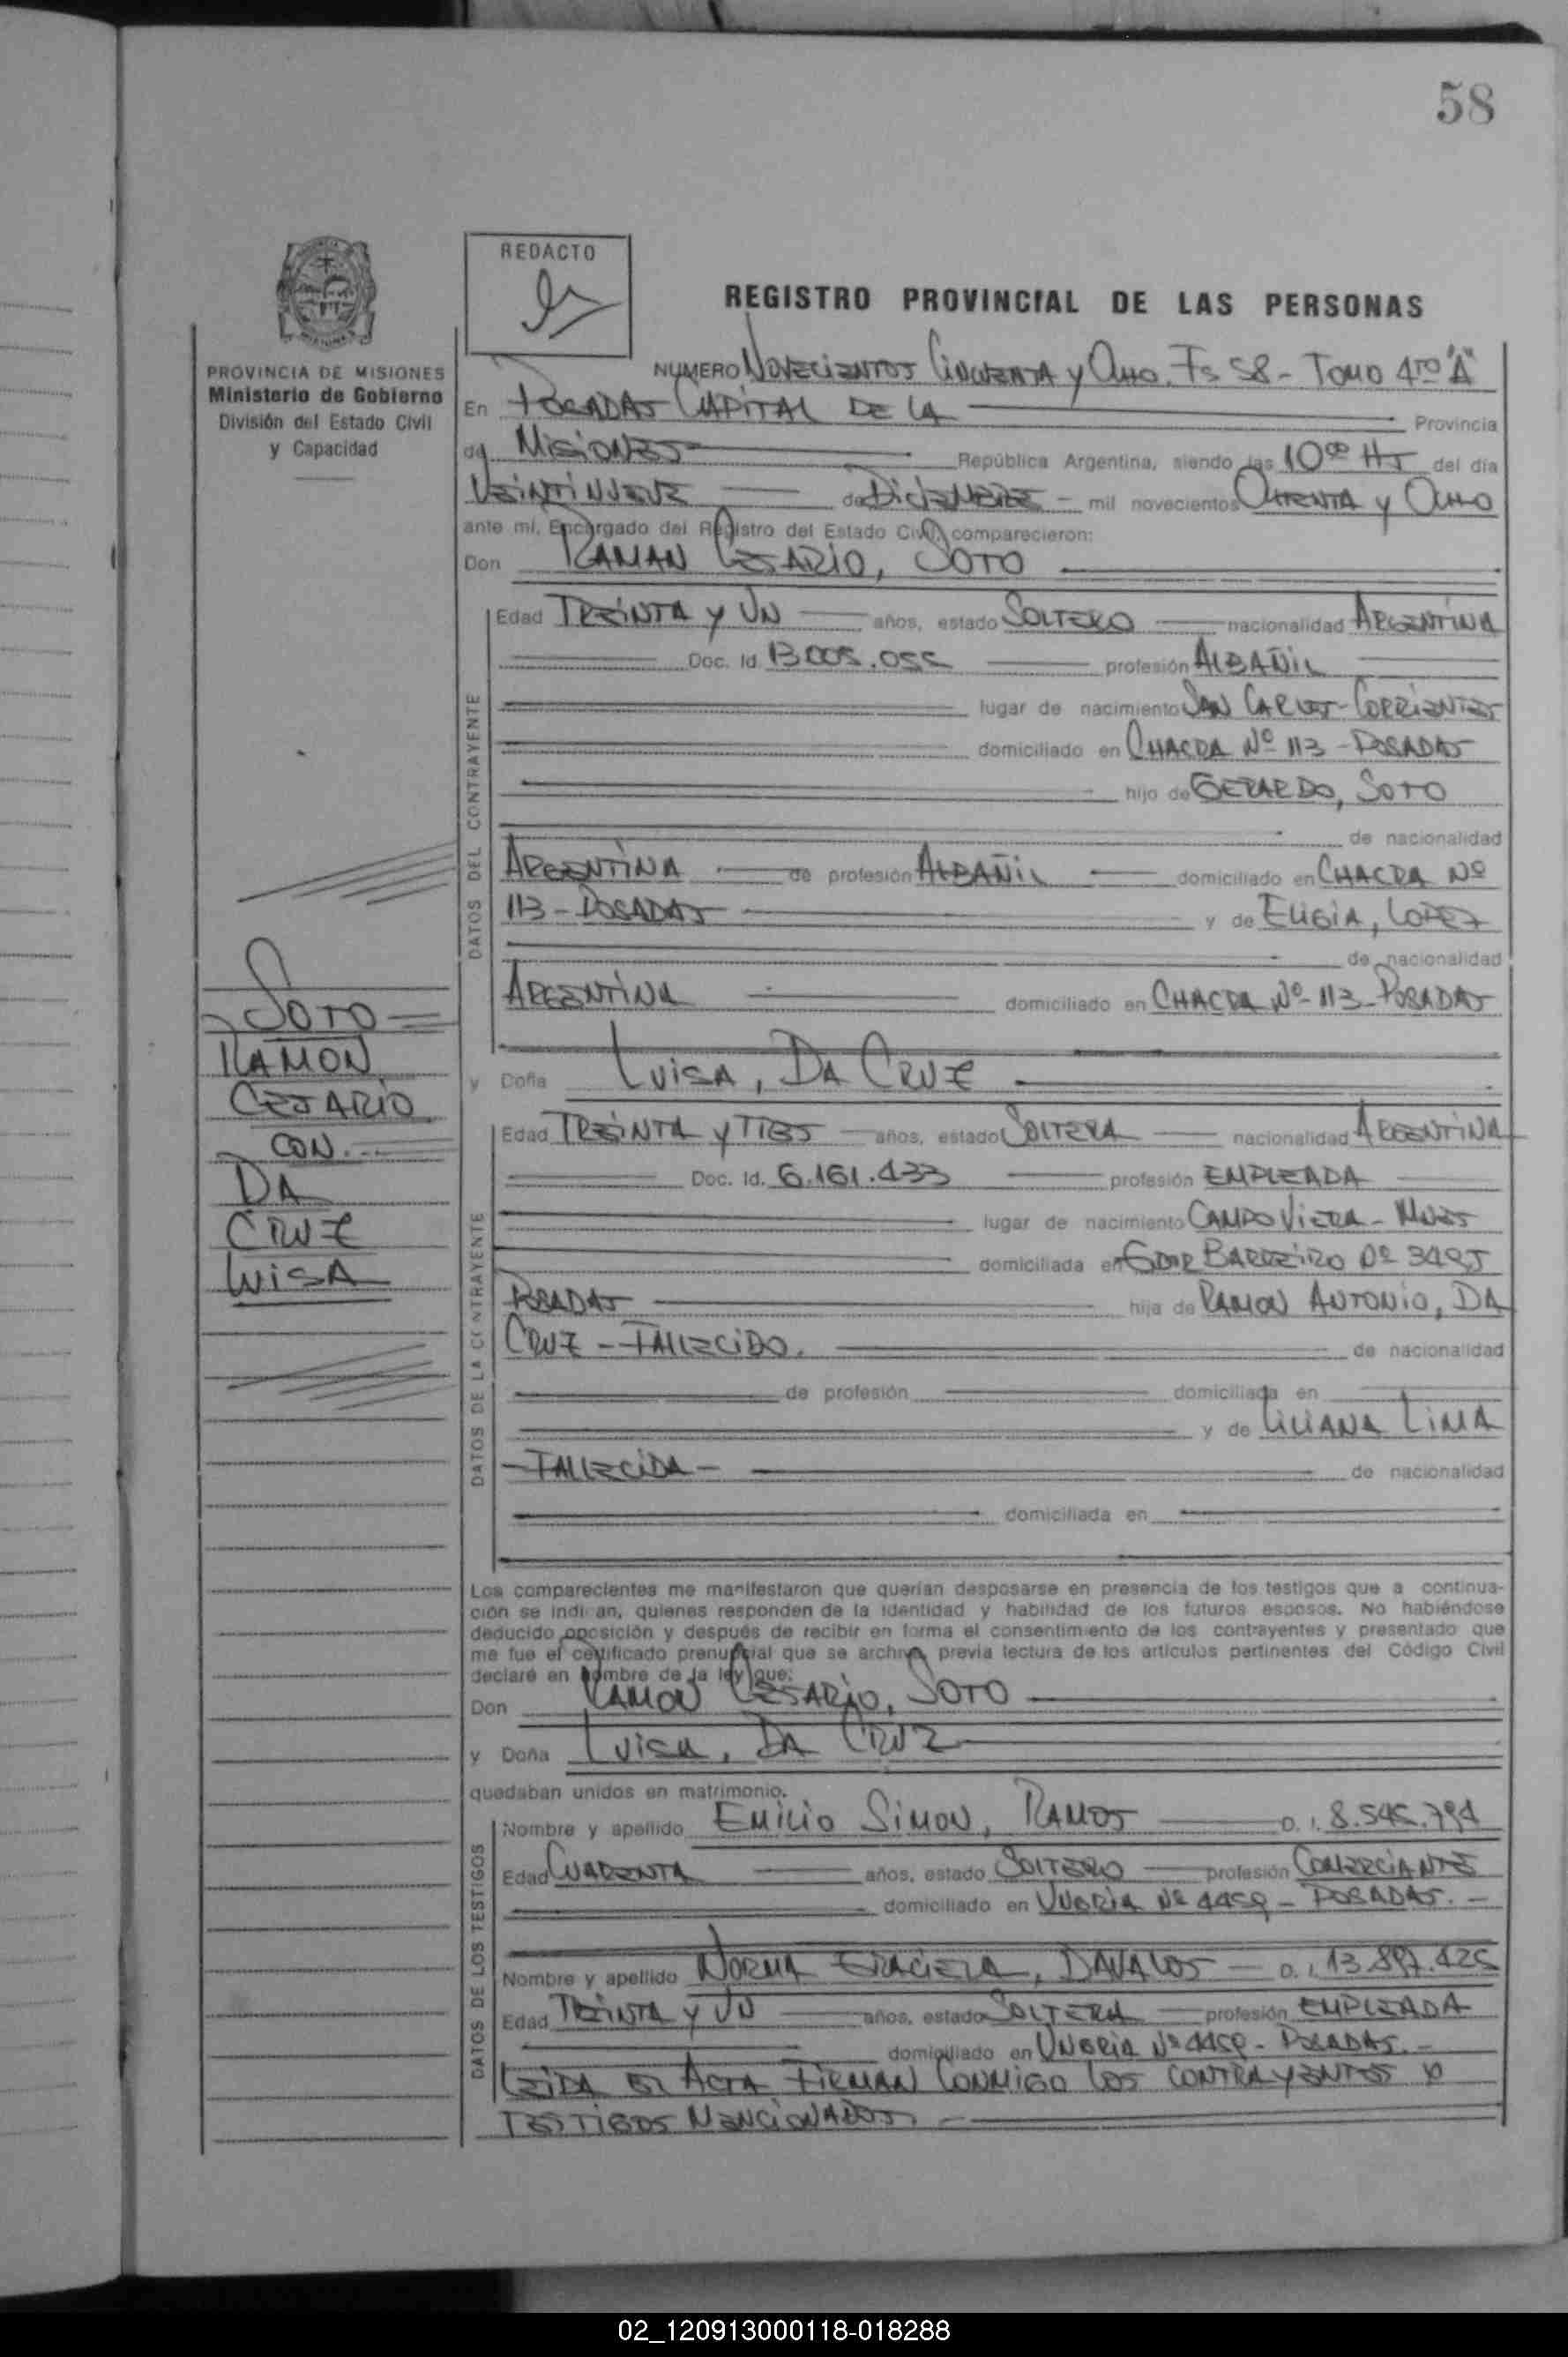 58
REDACTO
REGISTRO PROVINCIAL DE LAS PERSONAS
PROVINCIA DE MISIONES
Ministerio de Gobierno
División del Estado Civil
y Capacidad
NUMERO NOVECIENTOS CINCUENTA y OCHO. Fs 58 - TOMO 4TO "A"
En POSADAS CAPITAL DE LA Provincia
de MISIONES República Argentina, siendo las 10 00 HS del día
VEINTINUEVE de DICIEMBRE - mil novecientos OCHENTA y OCHO
ante mí, Encargado del Registro del Estado Civil, comparecieron:
Don RAMAN CESARIO, SOTO
DATOS DEL CONTRAYENTE
Edad TREINTA y UN años, estado SOLTERO nacionalidad ARGENTINA
Doc. Id. 13.005.055 profesión ALBAÑIL
lugar de nacimiento SAN CARLOS - CORRIENTES
domiciliado en CHACRA Nº 113 - POSADAS
hijo de GERARDO, SOTO
de nacionalidad
ARGENTINA de profesión ALBAÑIL domiciliado en CHACRA Nº
113 - POSADAS y de ELIGIA, LOPEZ
de nacionalidad
ARGENTINA domiciliado en CHACRA Nº 113 - POSADAS
SOTO
RAMON
CESARIO
CON.
DA
CRUZ
LUISA
y Doña LUISA, DA CRUZ
DATOS DE LA CONTRAYENTE
Edad TREINTA y TRES años, estado SOLTERA nacionalidad ARGENTINA
Doc. Id. 6.161.433 profesión EMPLEADA
lugar de nacimiento CAMPO VIERA - MNES
domiciliada en GDOR BARREIRO Nº 3495
POSADAS hija de RAMON ANTONIO, DA
CRUZ - FALLECIDO. de nacionalidad
de profesión domiciliada en
y de LILIANA LIMA
- FALLECIDA - de nacionalidad
domiciliada en
Los comparecientes me manifestaron que querían desposarse en presencia de los testigos que a continua-
ción se indi an, quienes responden de la identidad y habilidad de los futuros esposos. No habiéndose
deducido oposición y después de recibir en forma el consentimiento de los contrayentes y presentado que
me fue el certificado prenupcial que se archiva, previa lectura de los artículos pertinentes del Código Civil
declaré en nombre de la ley que:
Don RAMON CESARIO, SOTO
y Doña LUISA, DA CRUZ
quedaban unidos en matrimonio.
DATOS DE LOS TESTIGOS
Nombre y apellido EMILIO SIMON, RAMOS D. I. 8.545.794
Edad CUARENTA años, estado SOLTERO profesión COMERCIANTE
domiciliado en UNGRIA Nº 4459 - POSADAS. -
Nombre y apellido NORMA GRACIELA, DAVALOS - D. I. 13.897.425
Edad TREINTA y UN años, estado SOLTERA profesión EMPLEADA
domiciliado en UNGRIA Nº 4459 - POSADAS. -
LEIDA EL ACTA FIRMAN CONMIGO LOS CONTRAYENTES y
TESTIGOS MENCIONADOS. -
02_120913000118-018288